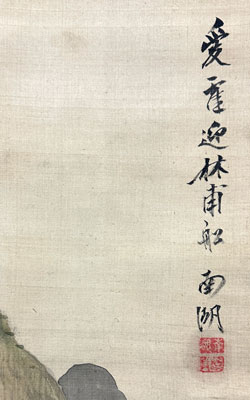 愛隺迎林甫船 南湖